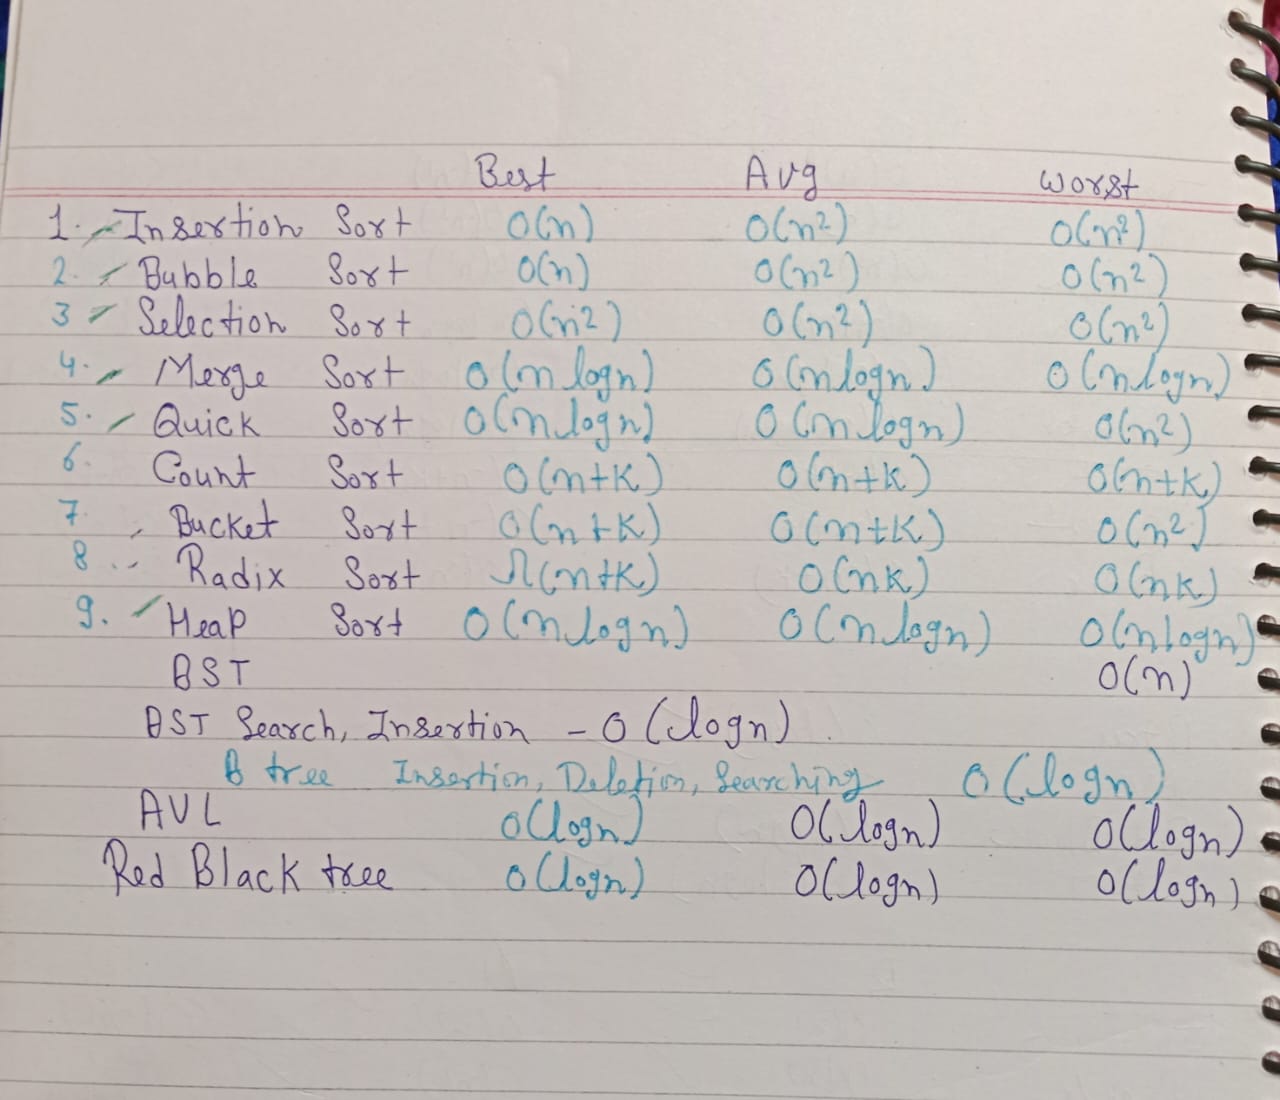 Best Avg Worst
1. Insertion Sort O(n) O(n²) O(n²)
2. Bubble Sort O(n) O(n²) O(n²)
3 Selection Sort O(n²) O(n²) O(n²)
4. Merge Sort O(n logn) O(n logn) O(n logn)
5. Quick Sort O(n logn) O(n logn) O(n²)
6. Count Sort O(n+k) O(n+k) O(n+k)
7. Bucket Sort O(n+k) O(n+k) O(n²)
8 Radix Sort Ω(n+k) O(nk) O(nk)
9. Heap Sort O(n logn) O(n logn) O(n logn)
BST O(n)
BST Search, Insertion - O(logn).
B tree Insertion, Deletion, Searching O(logn)
AVL O(logn) O(logn) O(logn)
Red Black tree O(logn) O(logn) O(logn)